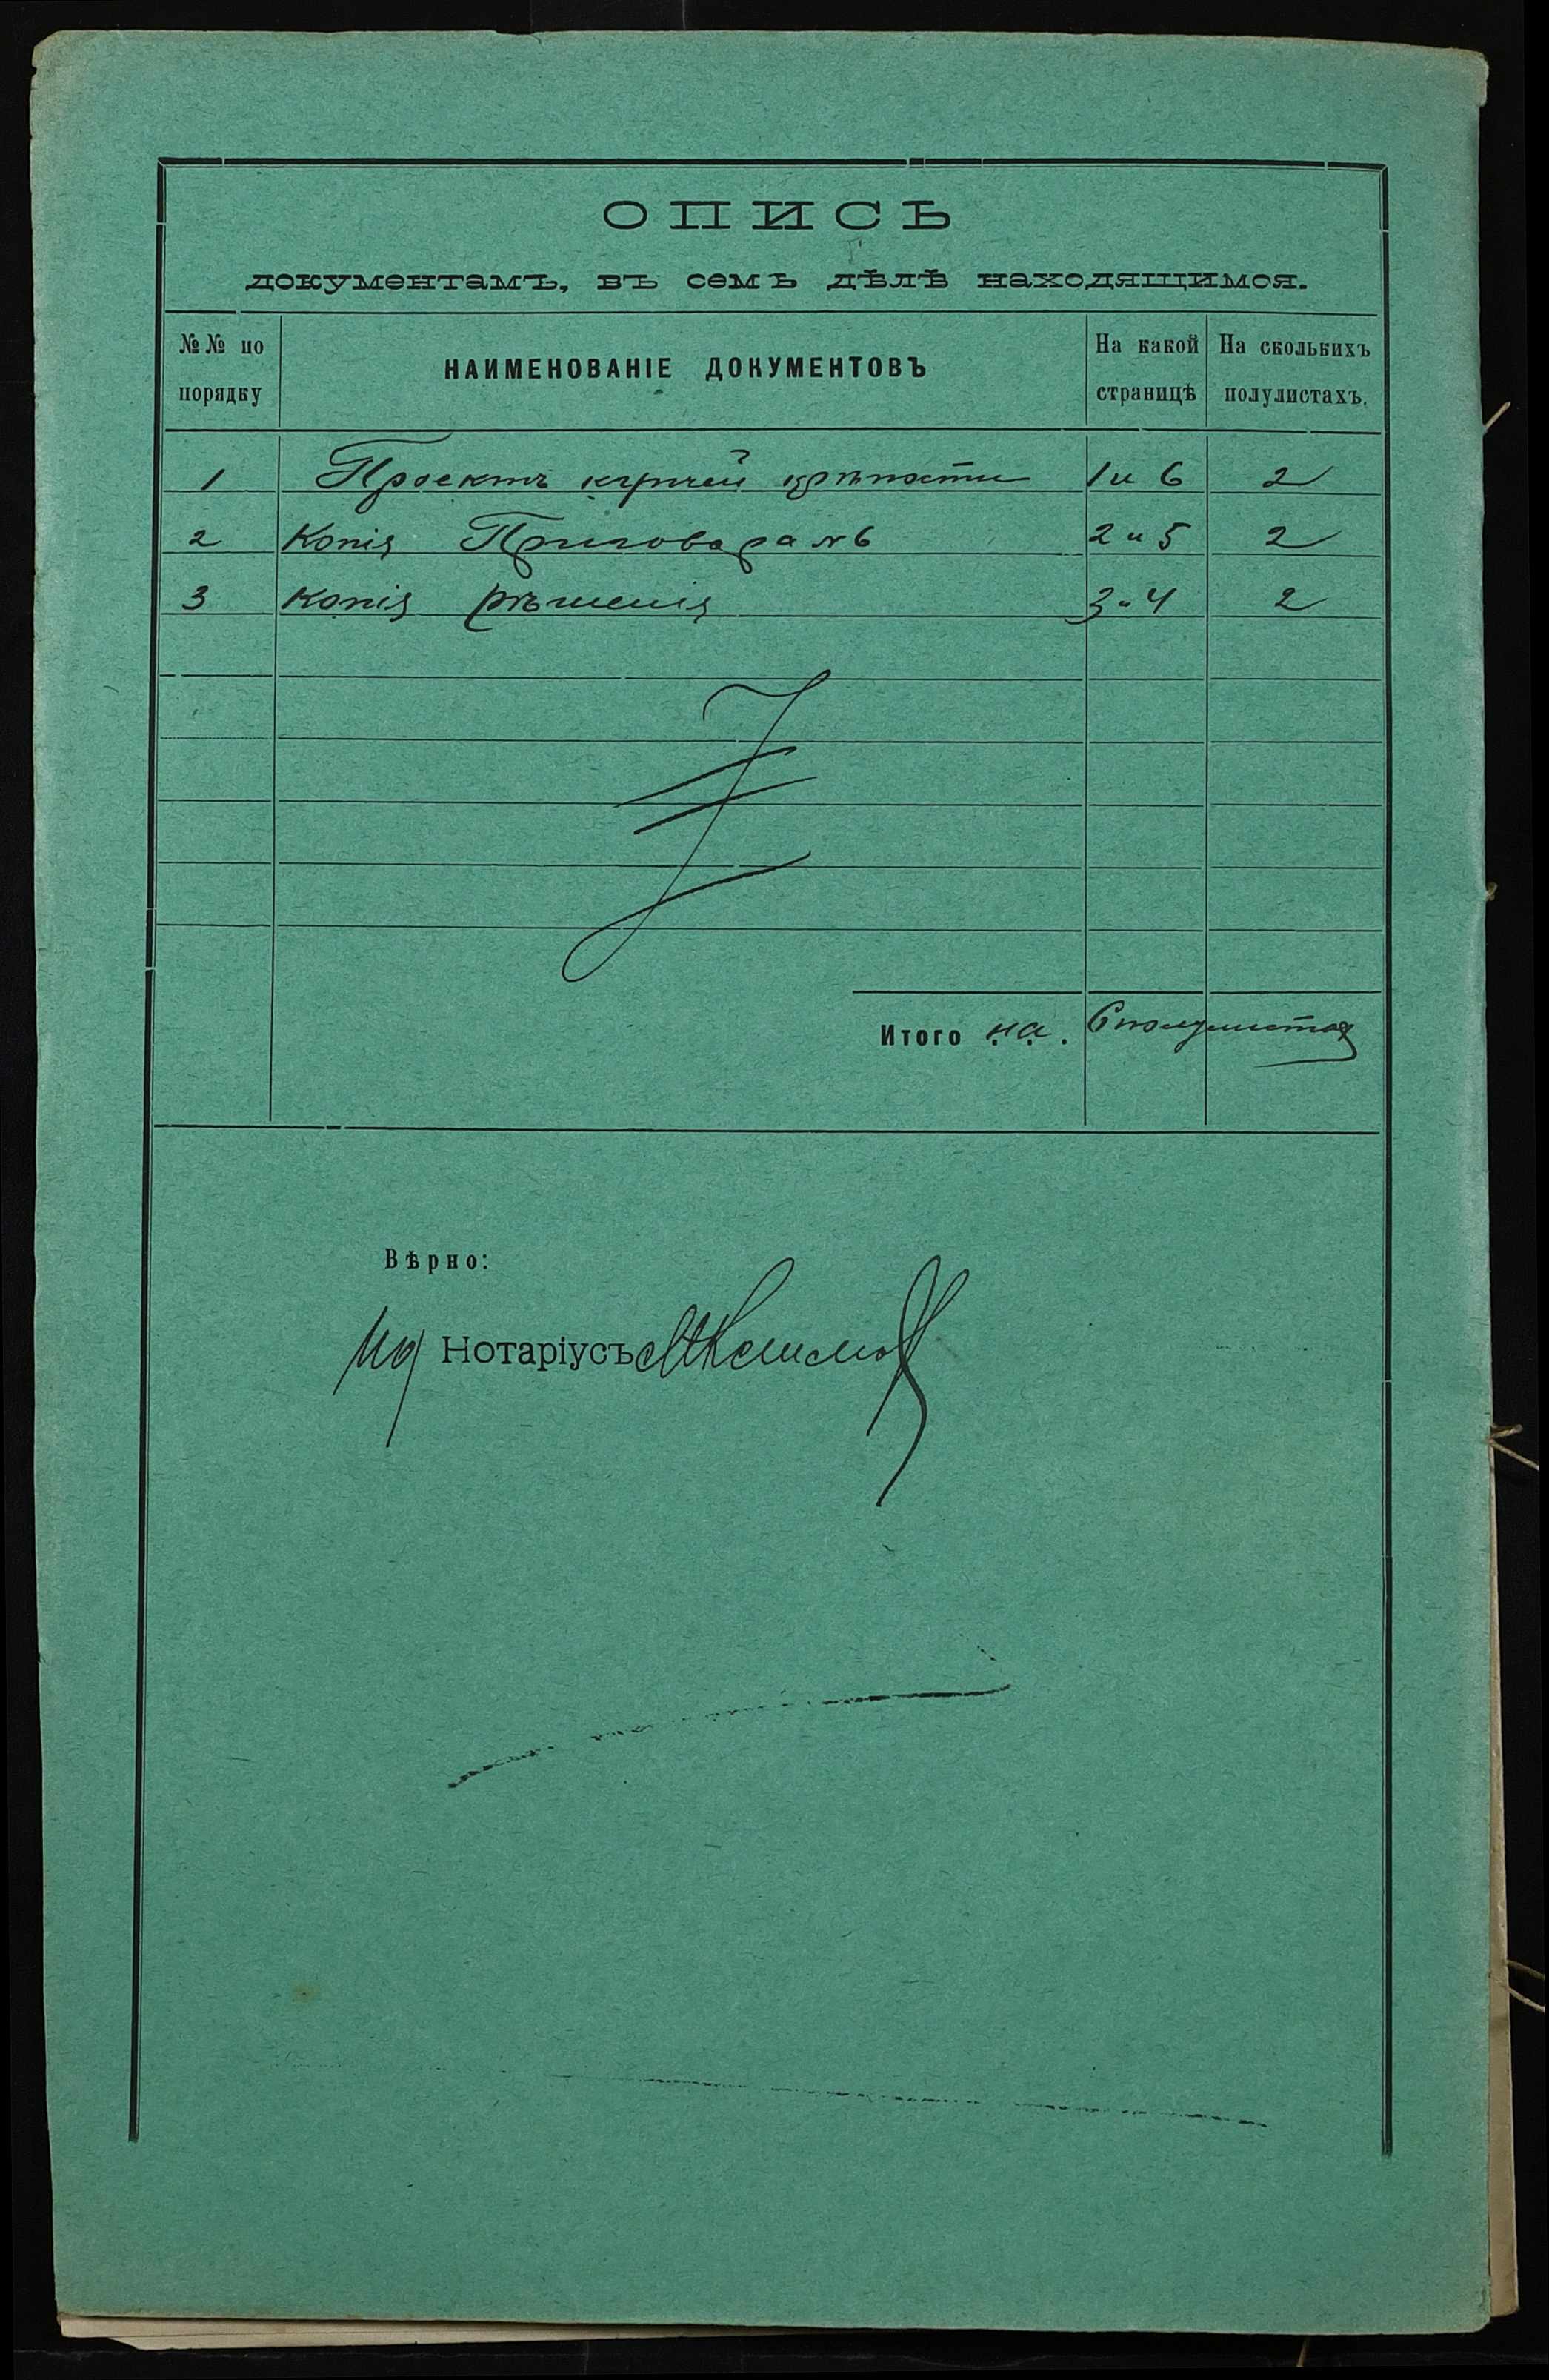 ОПИСЬ
документамъ, въ семъ дѣлѣ находящимся.
№№ по порядку
НАИМЕНОВАНІЕ ДОКУМЕНТОВЪ
На какой страницѣ
На сколькихъ полулистахъ.
1 Проектъ купчей крѣпости 1 и 6 2
2 Копія Приговора №6 2 и 5 2
3 Копія рѣшенія 3 и 4 2
Итого на 6 полулистахъ
Вѣрно:
Нотаріусъ